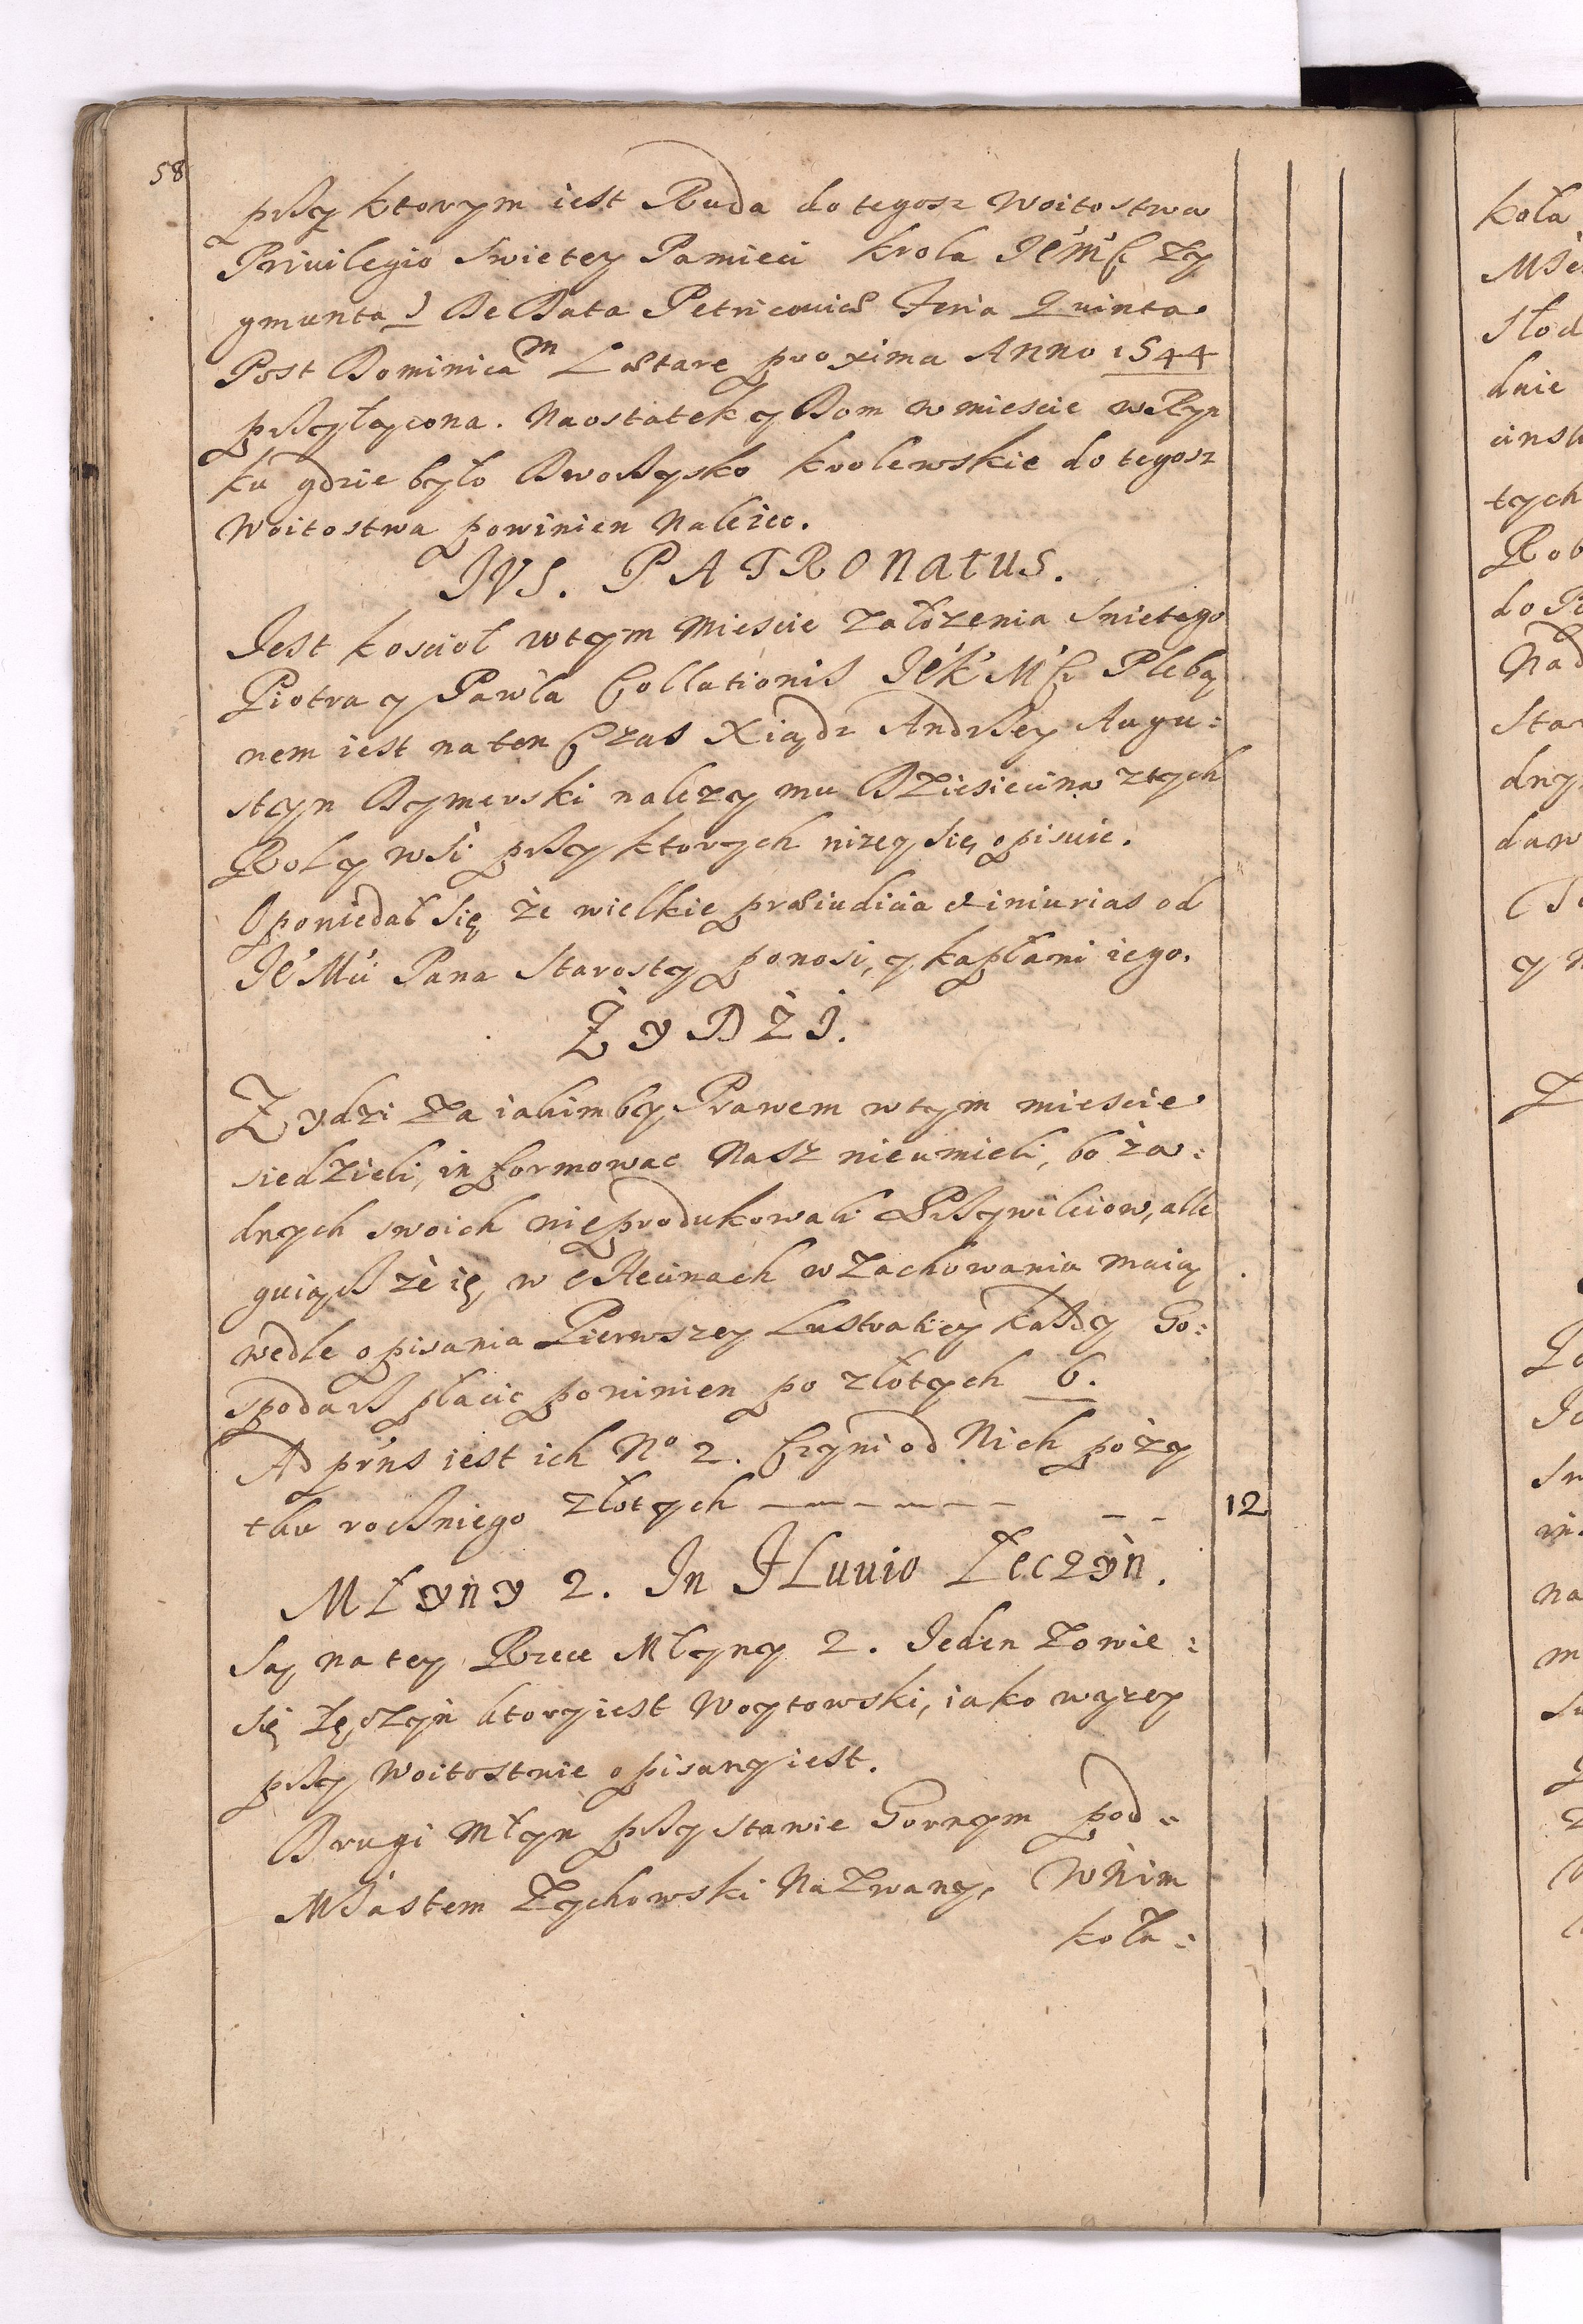 58
przy ktorym iest Ruda do tegosz Woitostwa
Priuilegio Swietey Pamieci Krola Je'm'sci Zy
gmunta J De Data Petricouiæ Feria Quinta
Post Dominicam Lætare proxima Anno 1544
przyłączona. Naostatek y Dom w miescie w Ryn
ku gdzie było Dworzysko krolewskie do tegosz
Woitostwa powinien Nalezec.
JVS. PATRONatus.
Jest kosciol w tym Miescie założenia Swietego
Piotra y Pawła Collationis Je'k'M'sci Pleba
nem iest na ten Czas Xiądz Andrzey Augu:
styn Dymerski nalezy mu Dziesiecina z tych
Rol y wsi przy ktorych nizey się opisuie.
Opowiedał się że wielkie præiudicia et iniurias od
Je'Mci Pana Starosty ponosi, y kapłani iego.
ŻyDŻJ.
Zydzi za iakimby Prawem w tym miescie
siedzieli, informowac Nasz nieumieli, bo ża:
dnych swoich nieprodukowali Przywileiow, alle
guiącz że ię w w zachowaniu maią
wedle opisania Pierwszey Lustratiey każdy Go:
spodarz płacic powinien po złotych 6.
Ad prńs iest ich No 2. Czyni od Nich poży
tku roczniego złotych — — — — — — 12
MŁyny 2. In FLuuio Łeczÿn.
Są na tey Rzece Młyny 2. Jeden zowie:
się Łęczyn ktory iest Woytowski, iako wyzey
przy Woitostwie opisany iest.
Drugi Młyn przy stawie Gornym pod:
Miastem Zychowski Nazwany, W Nim
koła:
koła
Słod
dnie
tych
Rob
do
Nad
Star
dny
daw
y